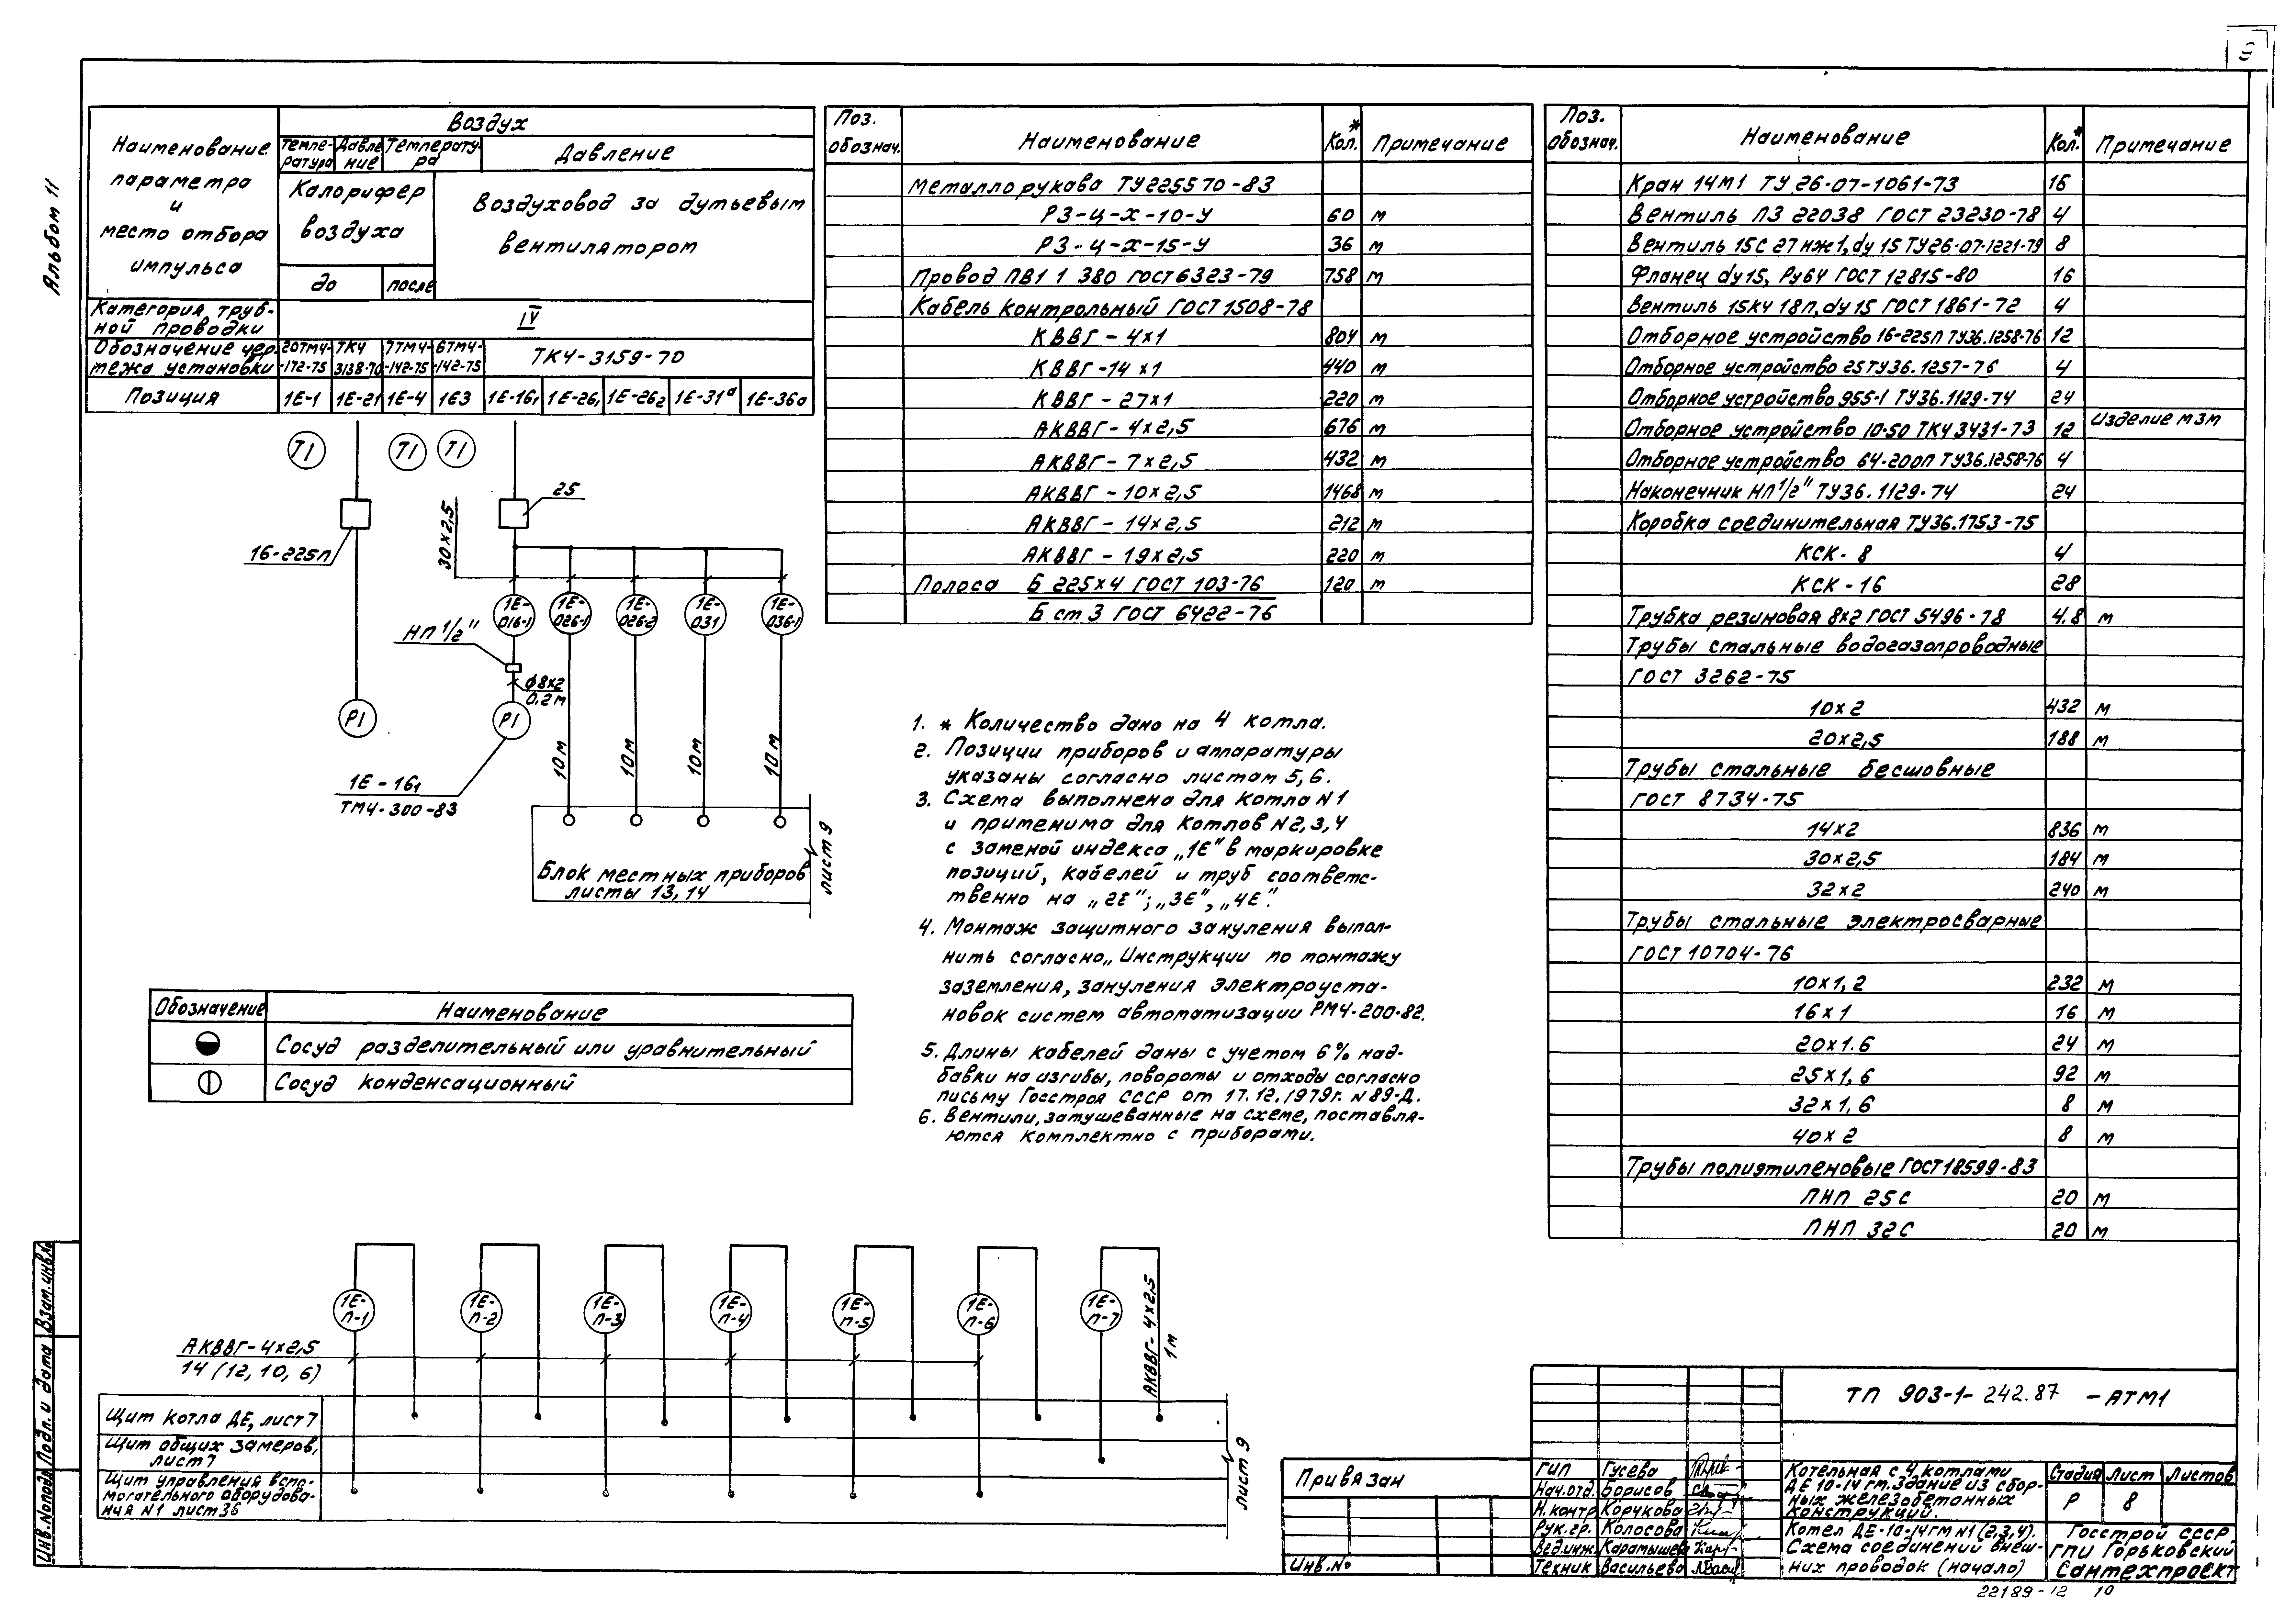 9
Альбом 11
Наименование параметра и место отбора импульса
Воздух
Температура
Давление
Температура
Давление
Калорифер воздуха
Воздуховод за дутьевым вентилятором
до
после
Категория трубной проводки
IV
Обозначение чертежа установки
20ТМ4-172-75
ТК4 3138-70
7ТМ4-142-75
6ТМ4-142-75
ТК4-3159-70
Позиция
1Е-1
1Е-21
1Е-4
1Е3
1Е-16₁
1Е-26₁
1Е-26₂
1Е-31а
1Е-36а
TI
TI
TI
25
16-225п
30×2,5
1Е-016-1
1Е-026-1
1Е-026-2
1Е-031
1Е-036-1
НП 1/2"
φ8×2
0,2м
PI
PI
1Е-16₁
ТМ4-300-83
10м
10м
10м
10м
Блок местных приборов
листы 13,14
лист 9
Обозначение
Наименование
Сосуд разделительный или уравнительный
Сосуд конденсационный
Поз. обознач.
Наименование
Кол.*
Примечание
Металлорукава ТУ22 5570-83
РЗ-Ц-Х-10-У 60 м
РЗ-Ц-Х-15-У 36 м
Провод ПВ1 1 380 ГОСТ 6323-79 758 м
Кабель контрольный ГОСТ 1508-78
КВВГ-4×1 804 м
КВВГ-14×1 440 м
КВВГ-27×1 220 м
АКВВГ-4×2,5 676 м
АКВВГ-7×2,5 432 м
АКВВГ-10×2,5 1468 м
АКВВГ-14×2,5 212 м
АКВВГ-19×2,5 220 м
Полоса Б 225×4 ГОСТ 103-76 120 м
Б ст 3 ГОСТ 6422-76
1. * Количество дано на 4 котла.
2. Позиции приборов и аппаратуры
указаны согласно листам 5,6.
3. Схема выполнена для котла N1
и применима для котлов N2,3,4
с заменой индекса „1Е" в маркировке
позиций, кабелей и труб соответс-
твенно на „2Е"; „3Е", „4Е".
4. Монтаж защитного зануления выпол-
нить согласно „Инструкции по монтажу
заземления, зануления электроуста-
новок систем автоматизации РМ4-200-82.
5. Длины кабелей даны с учетом 6% над-
бавки на изгибы, повороты и отходы согласно
письму Госстроя СССР от 17.12.1979г. N89-Д.
6. Вентили, затушеванные на схеме, поставля-
ются комплектно с приборами.
Поз. обознач.
Наименование
Кол.*
Примечание
Кран 14М1 ТУ 26-07-1061-73 16
Вентиль ПЗ 22038 ГОСТ 23230-78 4
Вентиль 15с 27 нж1, dу 15 ТУ26-07-1221-79 8
Фланец dу15, Ру64 ГОСТ 12815-80 16
Вентиль 15кч 18п, dу 15 ГОСТ 1861-72 4
Отборное устройство 16-225п ТУ36.1258-76 12
Отборное устройство 25 ТУ36.1257-76 4
Отборное устройство 955-1 ТУ36.1129-74 24
Отборное устройство 10-50 ТК4 3431-73 12 Изделие МЗМ
Отборное устройство 64-200п ТУ36.1258-76 4
Наконечник НП 1/2" ТУ36.1129-74 24
Коробка соединительная ТУ36.1753-75
КСК-8 4
КСК-16 28
Трубка резиновая 8×2 ГОСТ 5496-78 4,8 м
Трубы стальные водогазопроводные
ГОСТ 3262-75
10×2 432 м
20×2,5 188 м
Трубы стальные бесшовные
ГОСТ 8734-75
14×2 836 м
30×2,5 184 м
32×2 240 м
Трубы стальные электросварные
ГОСТ 10704-76
10×1,2 232 м
16×1 16 м
20×1.6 24 м
25×1,6 92 м
32×1,6 8 м
40×2 8 м
Трубы полиэтиленовые ГОСТ 18599-83
ПНП 25С 20 м
ПНП 32С 20 м
1Е-П-1
1Е-П-2
1Е-П-3
1Е-П-4
1Е-П-5
1Е-П-6
1Е-П-7
АКВВГ-4×2,5
1м
АКВВГ-4×2,5
14 (12, 10, 6)
Щит котла ДЕ, лист 7
Щит общих замеров,
лист 7
Щит управления вспо-
могательного оборудова-
ния N1 лист 36
лист 9
Инв.Nподл.
Подп. и дата
Взам.инв.N
Привязан
Инв.№
ГИП Гусева
Нач.отд. Борисов
Н.контр Корчкова
Рук.гр. Колосова
Вед.инж. Карамышева
Техник Васильева
ТП 903-1-242.87 -АТМ1
Котельная с 4 котлами
ДЕ 10-14 гм. Здание из сбор-
ных железобетонных
конструкций.
Стадия Лист Листов
Р 8
Котел ДЕ-10-14ГМ N1 (2,3,4).
Схема соединений внеш-
них проводок (начало)
Госстрой СССР
ГПИ Горьковский
Сантехпроект
22189-12 10